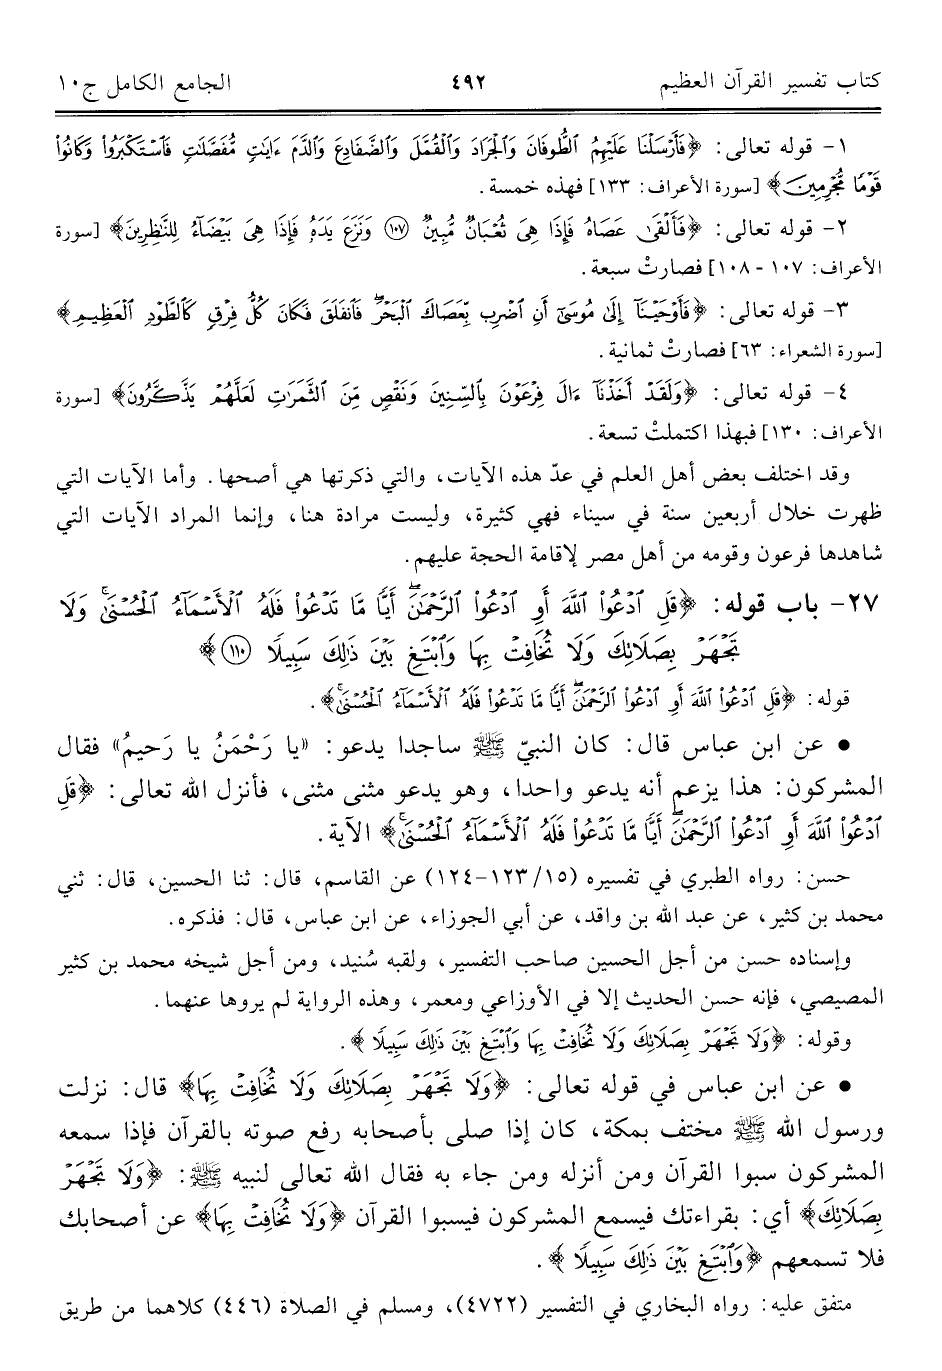 كتاب تفسير القرآن العظيم ٤٩٢ الجامع الكامل ج١٠
١- قوله تعالى: ﴿فَأَرْسَلْنَا عَلَيْهِمُ ٱلطُّوفَانَ وَٱلْجَرَادَ وَٱلْقُمَّلَ وَٱلضَّفَادِعَ وَٱلدَّمَ ءَايَٰتٍ مُّفَصَّلَٰتٍ فَٱسْتَكْبَرُوا۟ وَكَانُوا۟
قَوْمًا مُّجْرِمِينَ﴾ [سورة الأعراف: ١٣٣] فهذه خمسة.
٢- قوله تعالى: ﴿فَأَلْقَىٰ عَصَاهُ فَإِذَا هِىَ ثُعْبَانٌ مُّبِينٌ ۝١٠٧ وَنَزَعَ يَدَهُۥ فَإِذَا هِىَ بَيْضَآءُ لِلنَّٰظِرِينَ﴾ [سورة
الأعراف: ١٠٧ - ١٠٨] فصارتْ سبعة.
٣- قوله تعالى: ﴿فَأَوْحَيْنَآ إِلَىٰ مُوسَىٰٓ أَنِ ٱضْرِب بِّعَصَاكَ ٱلْبَحْرَ ۖ فَٱنفَلَقَ فَكَانَ كُلُّ فِرْقٍ كَٱلطَّوْدِ ٱلْعَظِيمِ﴾
[سورة الشعراء: ٦٣] فصارتْ ثمانية.
٤- قوله تعالى: ﴿وَلَقَدْ أَخَذْنَآ ءَالَ فِرْعَوْنَ بِٱلسِّنِينَ وَنَقْصٍ مِّنَ ٱلثَّمَرَٰتِ لَعَلَّهُمْ يَذَّكَّرُونَ﴾ [سورة
الأعراف: ١٣٠] فبهذا اكتملتْ تسعة.
وقد اختلف بعض أهل العلم في عدّ هذه الآيات، والتي ذكرتها هي أصحها. وأما الآيات التي
ظهرت خلال أربعين سنة في سيناء فهي كثيرة، وليست مرادة هنا، وإنما المراد الآيات التي
شاهدها فرعون وقومه من أهل مصر لإقامة الحجة عليهم.
٢٧- باب قوله: ﴿قُلِ ٱدْعُوا۟ ٱللَّهَ أَوِ ٱدْعُوا۟ ٱلرَّحْمَٰنَ ۖ أَيًّا مَّا تَدْعُوا۟ فَلَهُ ٱلْأَسْمَآءُ ٱلْحُسْنَىٰ ۚ وَلَا
تَجْهَرْ بِصَلَاتِكَ وَلَا تُخَافِتْ بِهَا وَٱبْتَغِ بَيْنَ ذَٰلِكَ سَبِيلًا ۝١١٠﴾
قوله: ﴿قُلِ ٱدْعُوا۟ ٱللَّهَ أَوِ ٱدْعُوا۟ ٱلرَّحْمَٰنَ ۖ أَيًّا مَّا تَدْعُوا۟ فَلَهُ ٱلْأَسْمَآءُ ٱلْحُسْنَىٰ ۚ﴾.
• عن ابن عباس قال: كان النبيّ ﷺ ساجدا يدعو: «يا رَحْمَنُ يا رَحيمُ» فقال
المشركون: هذا يزعم أنه يدعو واحدا، وهو يدعو مثنى مثنى، فأنزل الله تعالى: ﴿قُلِ
ٱدْعُوا۟ ٱللَّهَ أَوِ ٱدْعُوا۟ ٱلرَّحْمَٰنَ ۖ أَيًّا مَّا تَدْعُوا۟ فَلَهُ ٱلْأَسْمَآءُ ٱلْحُسْنَىٰ ۚ﴾ الآية.
حسن: رواه الطبري في تفسيره (١٥/ ١٢٣-١٢٤) عن القاسم، قال: ثنا الحسين، قال: ثني
محمد بن كثير، عن عبد الله بن واقد، عن أبي الجوزاء، عن ابن عباس، قال: فذكره.
وإسناده حسن من أجل الحسين صاحب التفسير، ولقبه سُنيد، ومن أجل شيخه محمد بن كثير
المصيصي، فإنه حسن الحديث إلا في الأوزاعي ومعمر، وهذه الرواية لم يروها عنهما.
وقوله: ﴿وَلَا تَجْهَرْ بِصَلَاتِكَ وَلَا تُخَافِتْ بِهَا وَٱبْتَغِ بَيْنَ ذَٰلِكَ سَبِيلًا﴾.
• عن ابن عباس في قوله تعالى: ﴿وَلَا تَجْهَرْ بِصَلَاتِكَ وَلَا تُخَافِتْ بِهَا﴾ قال: نزلت
ورسول الله ﷺ مختف بمكة، كان إذا صلى بأصحابه رفع صوته بالقرآن فإذا سمعه
المشركون سبوا القرآن ومن أنزله ومن جاء به فقال الله تعالى لنبيه ﷺ: ﴿وَلَا تَجْهَرْ
بِصَلَاتِكَ﴾ أي: بقراءتك فيسمع المشركون فيسبوا القرآن ﴿وَلَا تُخَافِتْ بِهَا﴾ عن أصحابك
فلا تسمعهم ﴿وَٱبْتَغِ بَيْنَ ذَٰلِكَ سَبِيلًا﴾.
متفق عليه: رواه البخاري في التفسير (٤٧٢٢)، ومسلم في الصلاة (٤٤٦) كلاهما من طريق